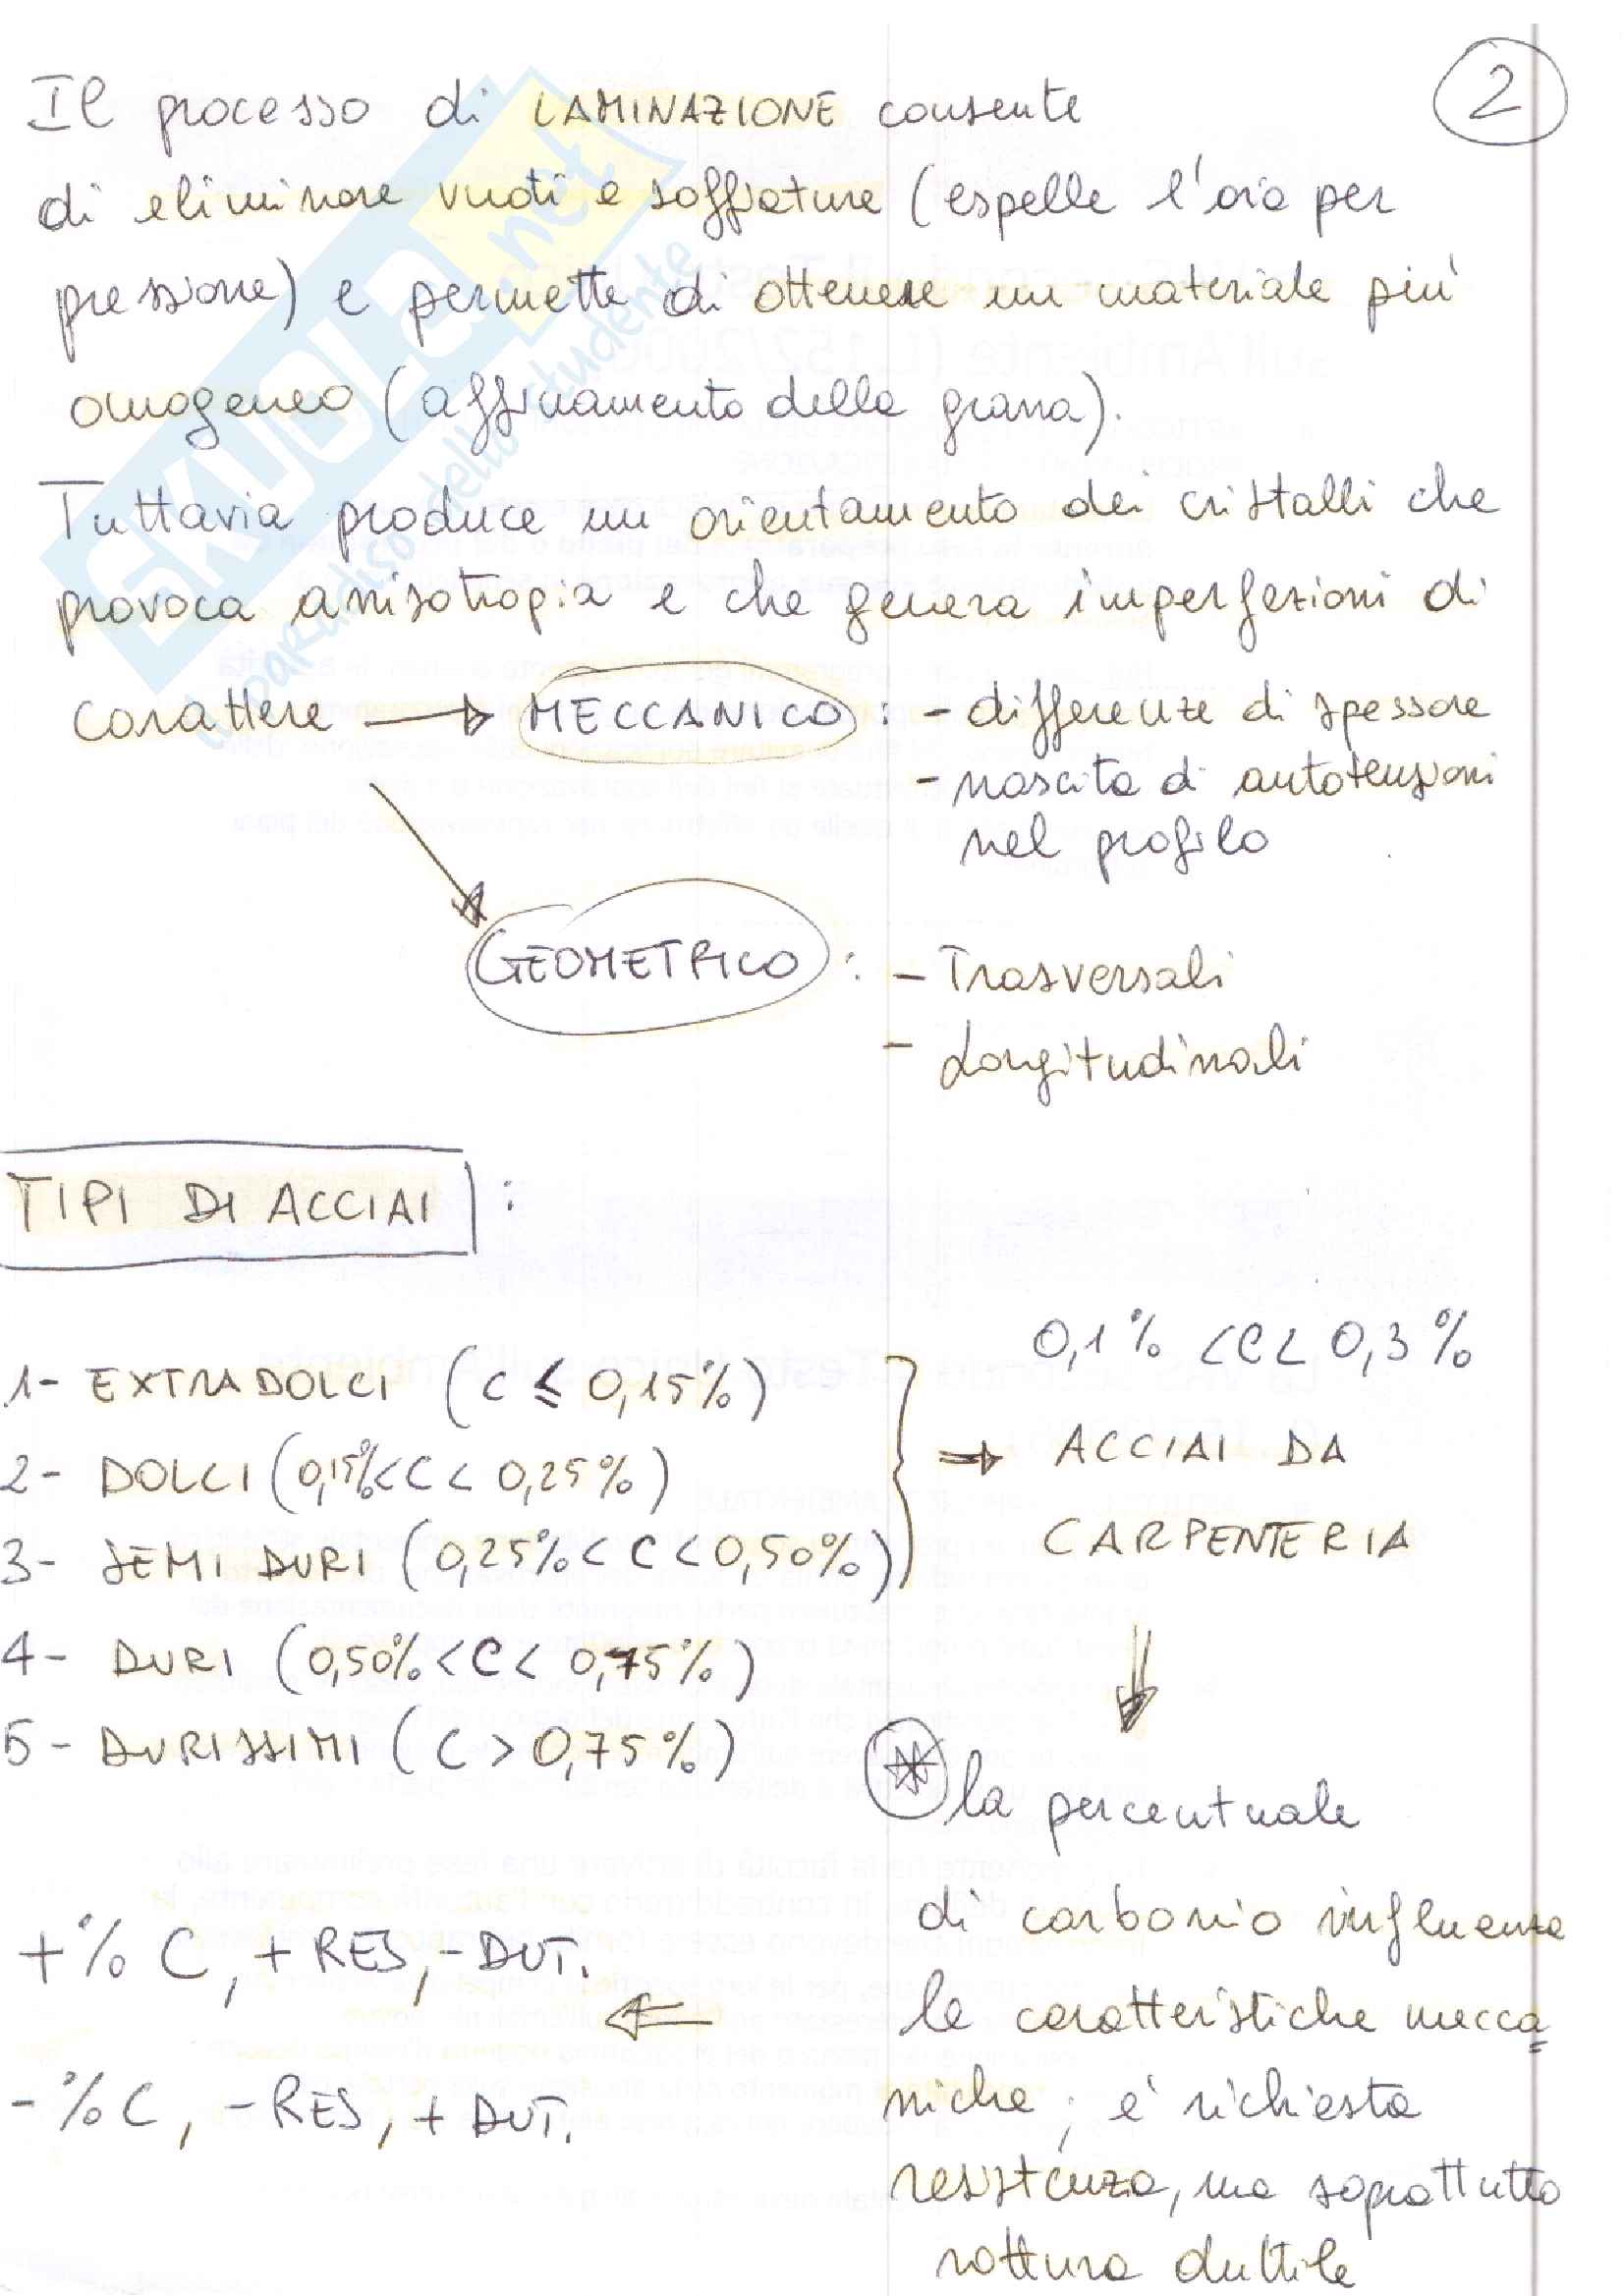 2
Il processo di LAMINAZIONE consente
di eliminare vuoti e soffiature (espelle l'aria per
pressione) e permette di ottenere un materiale più
omogeneo (affinamento della grana).
Tuttavia produce un orientamento dei cristalli che
provoca anisotropia e che genera imperfezioni di
carattere → MECCANICO : - differenze di spessore
- nascita di autotensioni
nel profilo
GEOMETRICO : - Trasversali
- Longitudinali
TIPI DI ACCIAI :
0,1% < C < 0,3%
1- EXTRADOLCI (C ≤ 0,15%)
2- DOLCI (0,15% < C < 0,25%)
3- SEMI DURI (0,25% < C < 0,50%)
4- DURI (0,50% < C < 0,75%)
5- DURISSIMI (C > 0,75%)
⇒ ACCIAI DA
CARPENTERIA
* la percentuale
di carbonio influenza
le caratteristiche mecca
niche; e' richiesta
resistenza, ma soprattutto
rottura duttile
+% C, + RES, - DUT.
-% C, - RES, + DUT.
SKUOLA.net
il paradiso dello studente